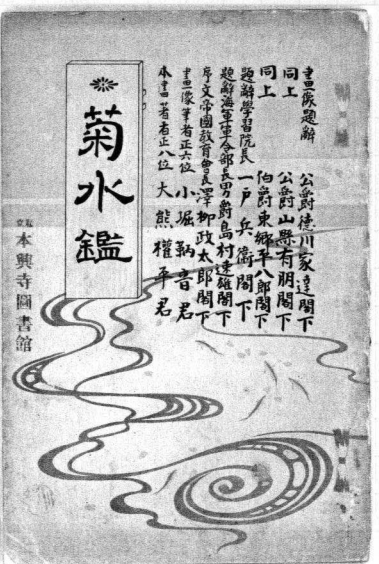 畫像題辭 公爵德川家達閣下
同上 公爵山縣有朋閣下
同上 伯爵東郷平八郎閣下
題辭學習院長 一戸兵衞閣下
題辭海軍軍令部長男爵島村速雄閣下
序文帝國教育會長澤柳政太郎閣下
畫像筆者正六位 小堀鞆音君
本書著者正八位 大熊權平君
菊水鑑
本興寺圖書館